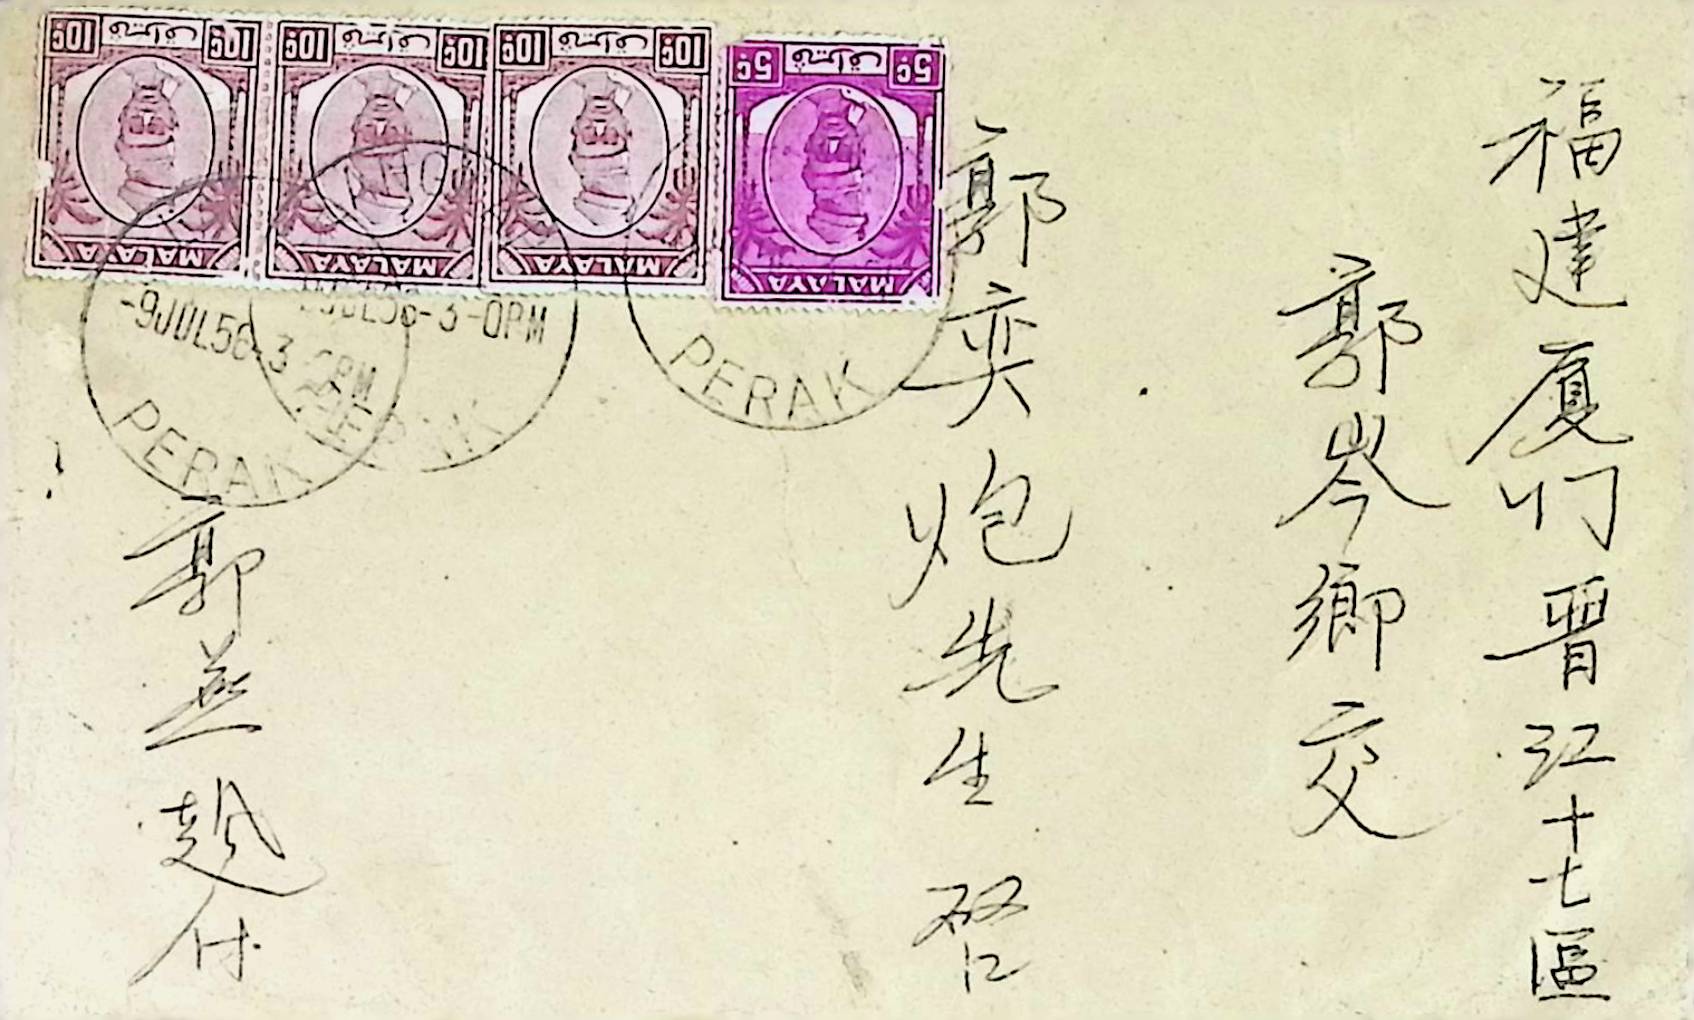 福建厦门晋江十七區
郭岑鄉交
郭奕炮先生 啓
10¢ 10¢
MALAYA
10¢ 10¢
MALAYA
10¢ 10¢
MALAYA
5¢ 5¢
MALAYA
-9JUL56-3-0PM
PERAK
JUL56-3-0PM
PERAK
PERAK
郭 付